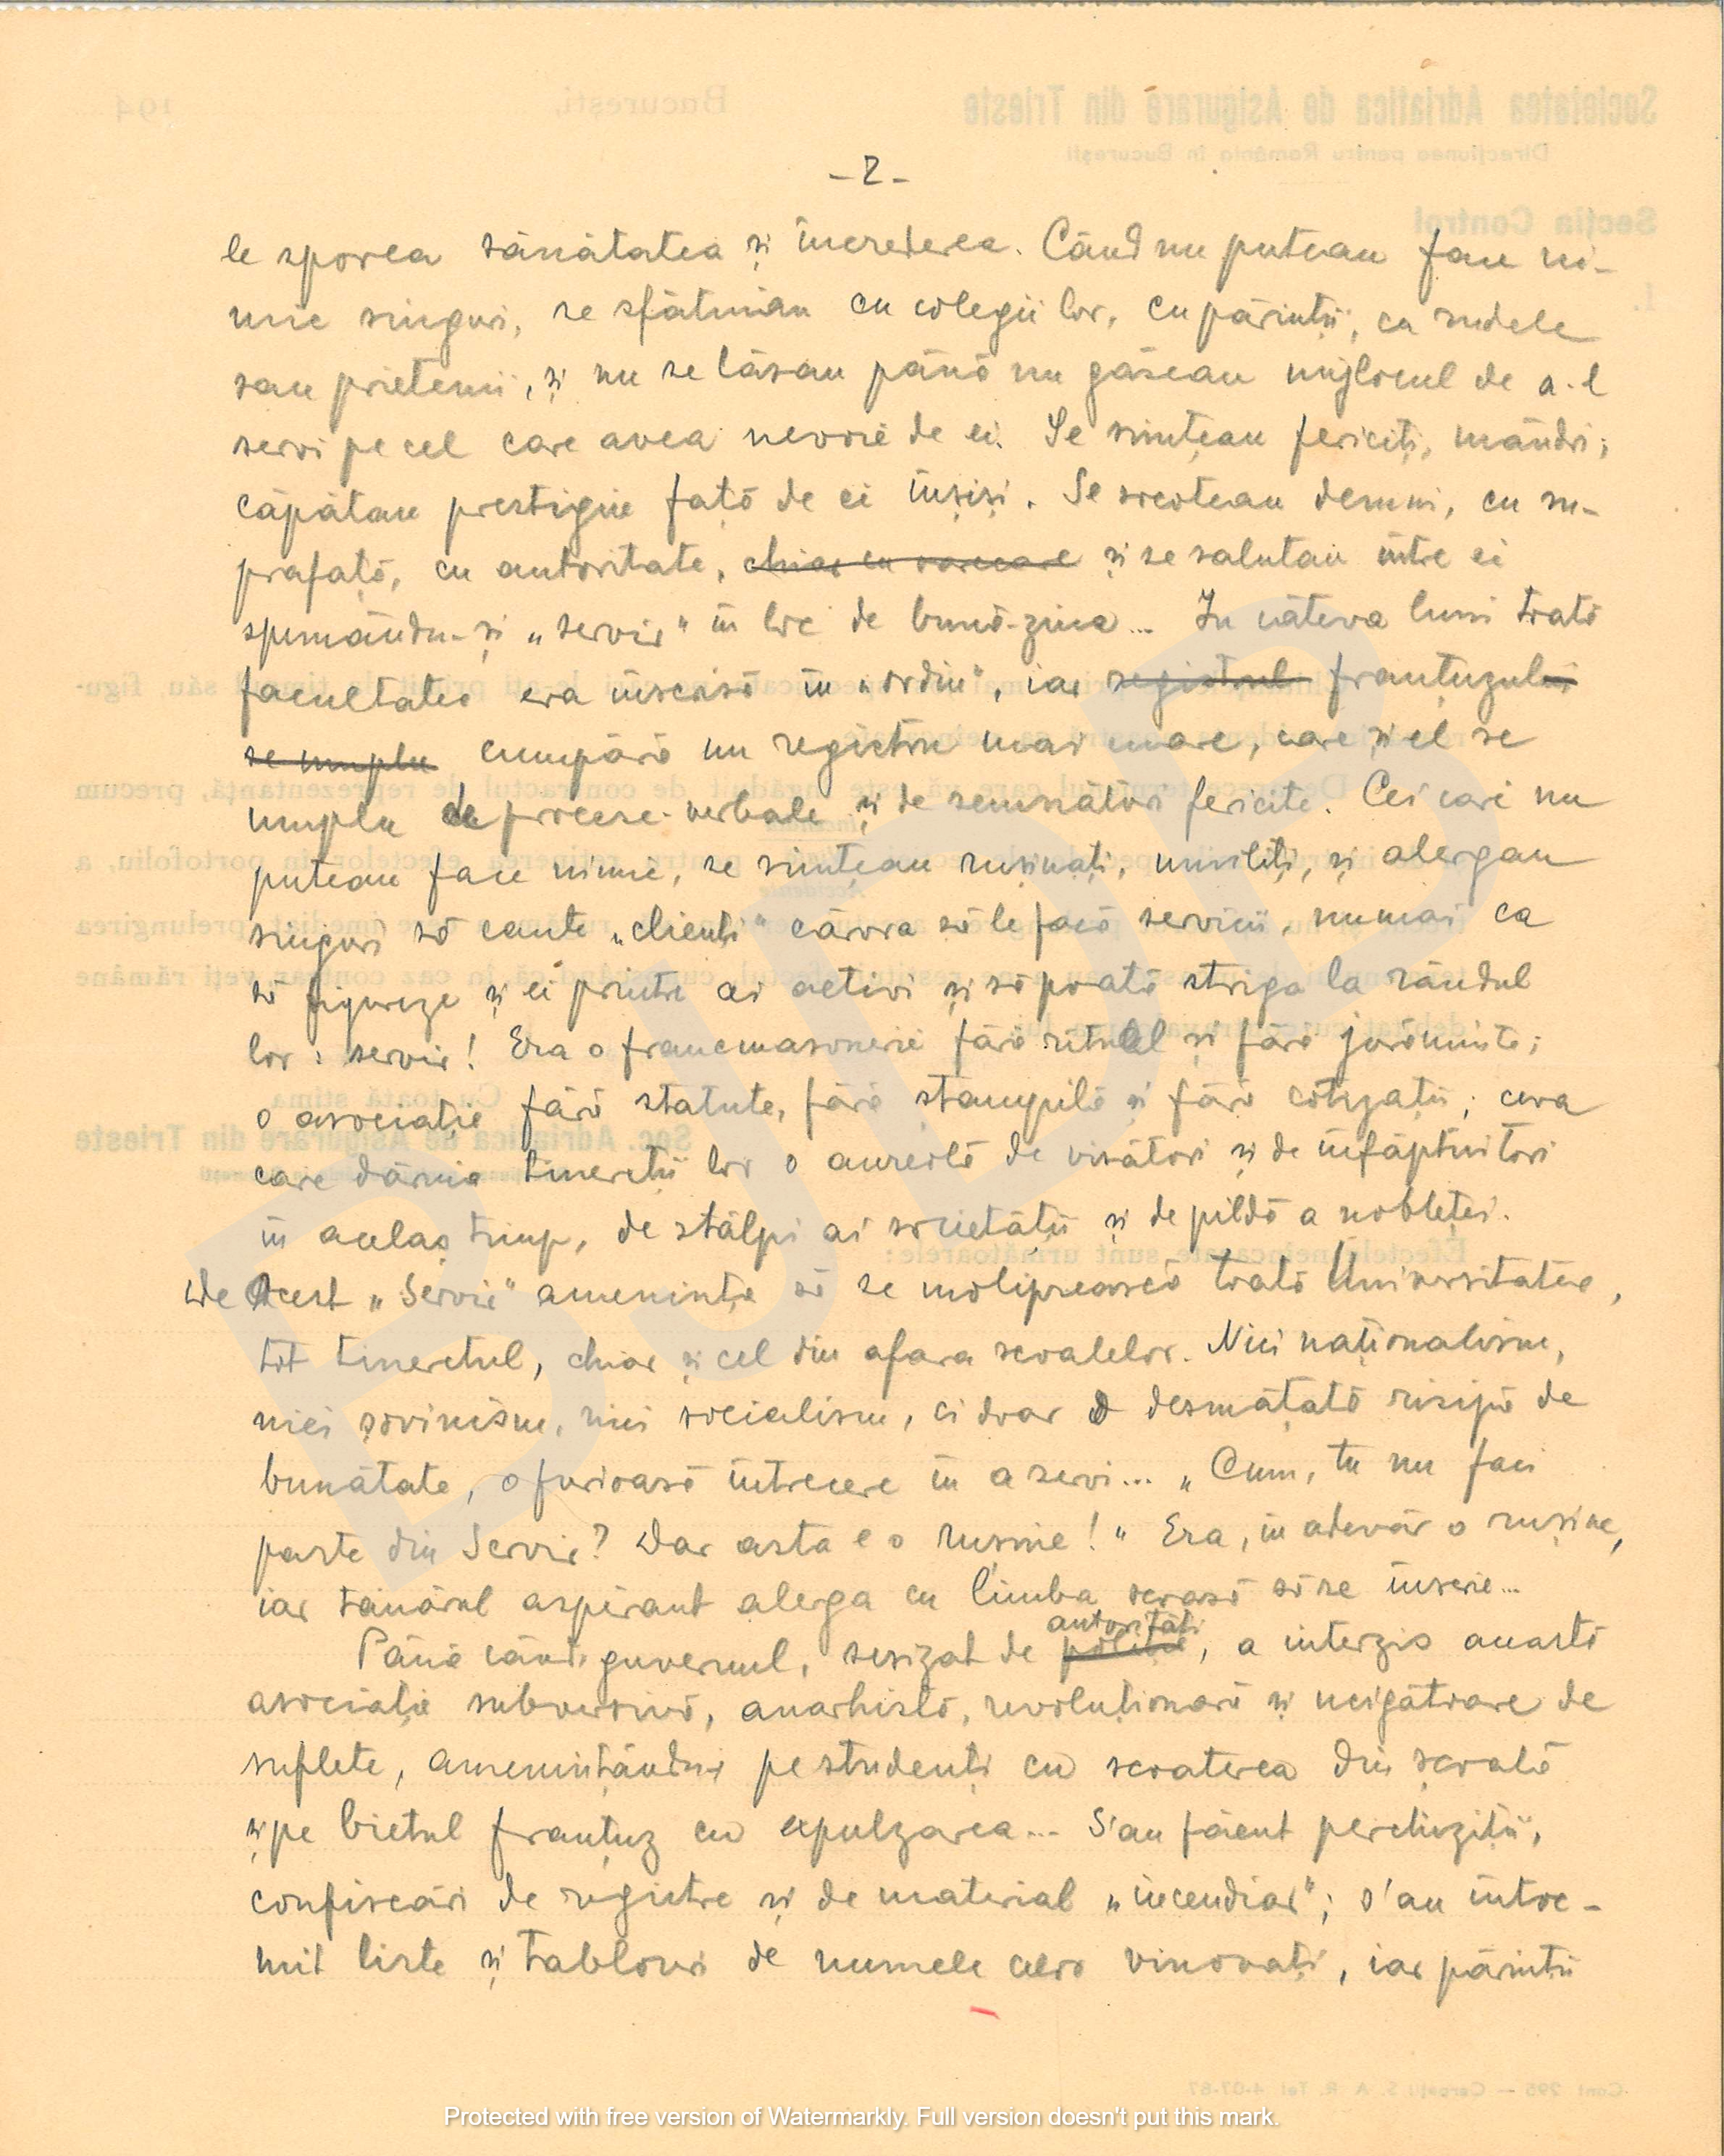 - 2 -
le sporea sănătatea și increderea. Când nu puteau face ni-
mic singuri, se sfătuiau cu colegii lor, cu părinții, cu rudele
sau prietenii, și nu se lăsau până nu găseau mijlocul de a-l
servi pe cel care avea nevoie de ei. Se simțeau fericiți, mândri;
căpătau prestigiu față de ei înșiși. Se socoteau demni, cu su-
prafață, cu autoritate, chiar cu oarecare și se salutau între ei
spunându-și „servir" în loc de bună-ziua... In câteva luni toată
facultatea era înscrisă în „ordin", iar registrul franțuzului
se umplu cumpără un registru mai mare, care și el se
umplu de procese-verbale și de semnături fericite. Cei cari nu
puteau face nimic, se simțeau rușinați, umiliți, și alergau
singuri să caute „clienți" cărora să le facă servicii, numai ca
să figureze și ei printre ai activi și să poată striga la rândul
lor: servir! Era o francmasonerie fără ritual și fără jurăminte;
o asociație fără statute, fără stampilă și fără cotizații; ceva
care dăruia tinereții lor o aureolă de visători și de înfăptuitori
în acelaș timp, de stâlpi ai societății și de pildă a nobleței.
De Acest „Servir" amenința să se molipsească toată Universitatea,
tot tineretul, chiar și cel din afara scoalelor. Nici naționalism,
nici șovinism, nici socialism, ci doar o desmățată risipă de
bunătate, o furioasă întrecere în a servi... „Cum, tu nu faci
parte din Servir? Dar asta e o rusine!" Era, în adevăr o rușine,
iar tânărul aspirant alerga cu limba scoasă să se înscrie...
autorități
Până când guvernul, sesizat de poliție, a interzis această
asociație subversivă, anarhistă, revoluționară și ucigătoare de
suflete, amenințându-i pe studenți cu scoaterea din școală
și pe bietul franțuz cu expulzarea... S'au făcut perchiziții,
confiscări de registre și de material „incendiar"; s'au întoc-
mit liste și tablouri de numele celor vinovați, iar părinții
Protected with free version of Watermarkly. Full version doesn't put this mark.